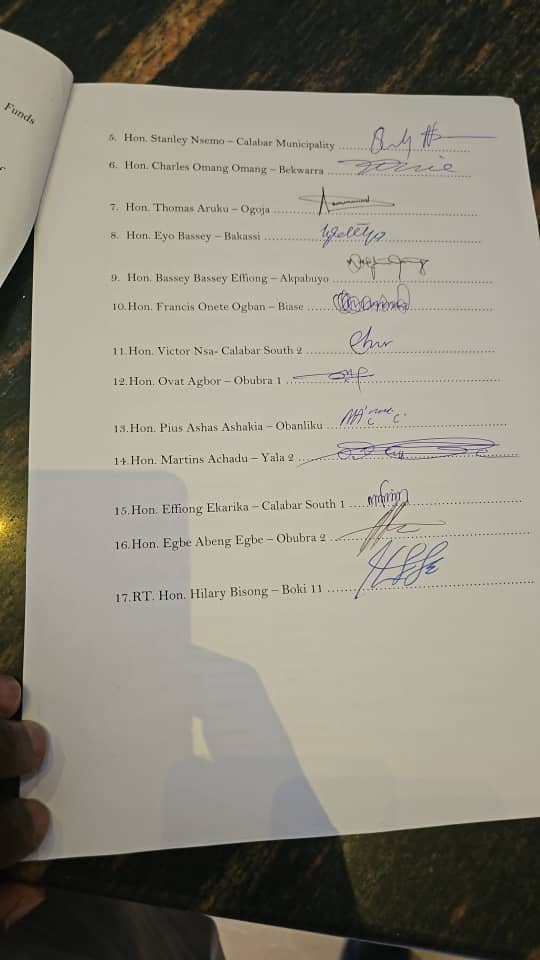 Funds
5. Hon. Stanley Nsemo – Calabar Municipality
6. Hon. Charles Omang Omang – Bekwarra
7. Hon. Thomas Aruku – Ogoja
8. Hon. Eyo Bassey – Bakassi
9. Hon. Bassey Bassey Effiong – Akpabuyo
10.Hon. Francis Onete Ogban – Biase
11.Hon. Victor Nsa- Calabar South 2
12.Hon. Ovat Agbor – Obubra 1
13.Hon. Pius Ashas Ashakia – Obanliku
14.Hon. Martins Achadu – Yala 2
15.Hon. Effiong Ekarika – Calabar South 1
16.Hon. Egbe Abeng Egbe – Obubra 2
17.RT. Hon. Hilary Bisong – Boki 11